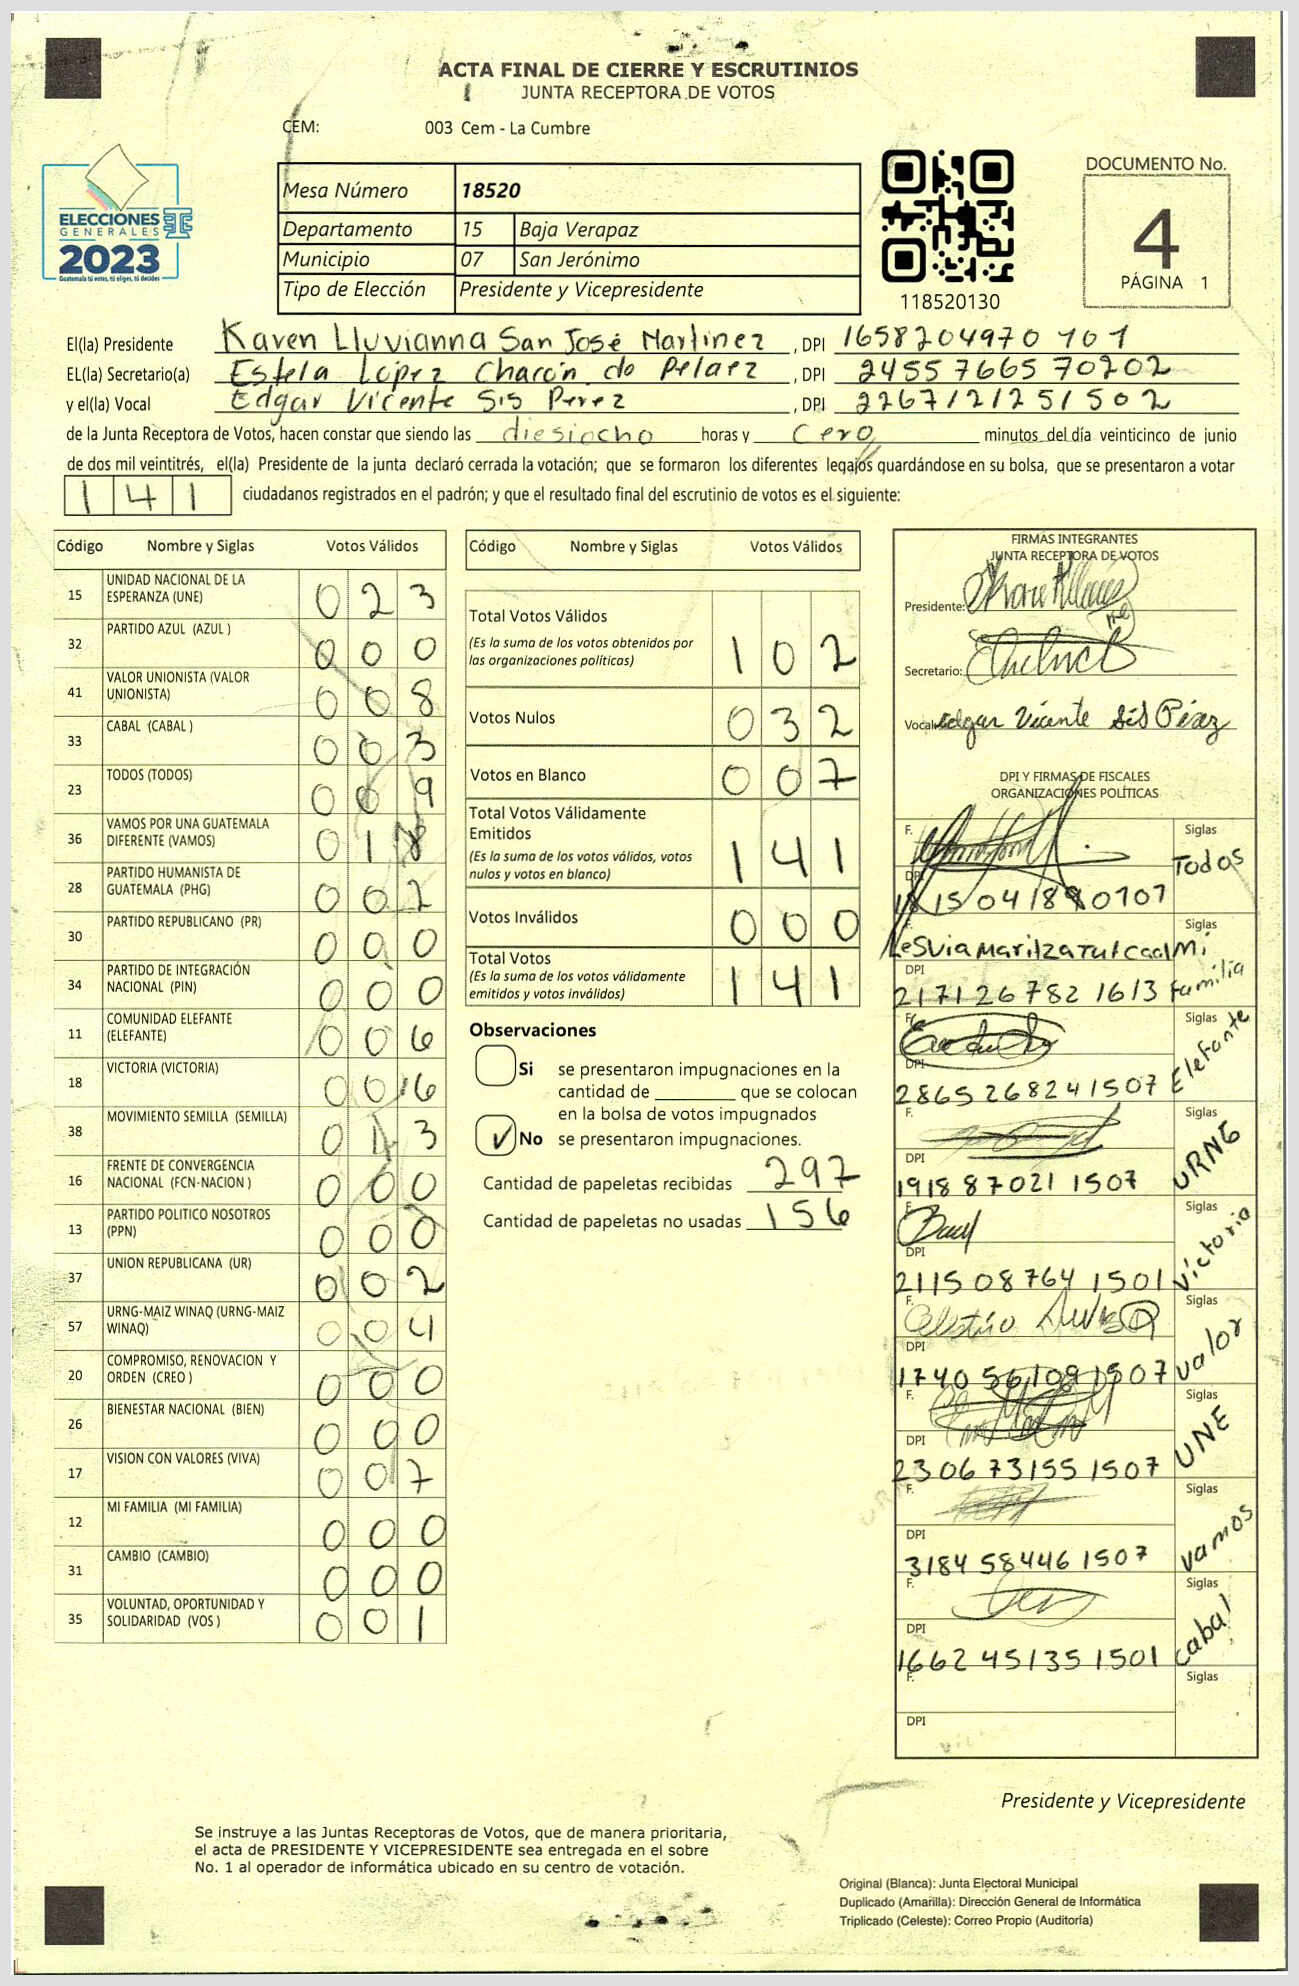 ACTA FINAL DE CIERRE Y ESCRUTINIOS
JUNTA RECEPTORA DE VOTOS
CEM: 003 Cem - La Cumbre
ELECCIONES
GENERALES
2023
Guatemala tú votas, tú eliges, tú decides
Mesa Número 18520
Departamento 15 Baja Verapaz
Municipio 07 San Jerónimo
Tipo de Elección Presidente y Vicepresidente
118520130
DOCUMENTO No.
4
PÁGINA 1
El(la) Presidente Karen Lluvianna San José Martinez , DPI 1658204970101
EL(la) Secretario(a) Estela López Charón de Pelaez , DPI 2455766570202
y el(la) Vocal Edgar Vicente Sis Perez , DPI 2267121251502
de la Junta Receptora de Votos, hacen constar que siendo las diesiocho horas y cero minutos del día veinticinco de junio
de dos mil veintitrés, el(la) Presidente de la junta declaró cerrada la votación; que se formaron los diferentes legajos guardándose en su bolsa, que se presentaron a votar
141 ciudadanos registrados en el padrón; y que el resultado final del escrutinio de votos es el siguiente:
Código Nombre y Siglas Votos Válidos
15 UNIDAD NACIONAL DE LA ESPERANZA (UNE) 023
32 PARTIDO AZUL (AZUL ) 000
41 VALOR UNIONISTA (VALOR UNIONISTA) 008
33 CABAL (CABAL ) 003
23 TODOS (TODOS) 009
36 VAMOS POR UNA GUATEMALA DIFERENTE (VAMOS) 018
28 PARTIDO HUMANISTA DE GUATEMALA (PHG) 002
30 PARTIDO REPUBLICANO (PR) 000
34 PARTIDO DE INTEGRACIÓN NACIONAL (PIN) 000
11 COMUNIDAD ELEFANTE (ELEFANTE) 006
18 VICTORIA (VICTORIA) 006
38 MOVIMIENTO SEMILLA (SEMILLA) 013
16 FRENTE DE CONVERGENCIA NACIONAL (FCN-NACION ) 000
13 PARTIDO POLITICO NOSOTROS (PPN) 000
37 UNION REPUBLICANA (UR) 002
57 URNG-MAIZ WINAQ (URNG-MAIZ WINAQ) 004
20 COMPROMISO, RENOVACION Y ORDEN (CREO ) 000
26 BIENESTAR NACIONAL (BIEN) 000
17 VISION CON VALORES (VIVA) 007
12 MI FAMILIA (MI FAMILIA) 000
31 CAMBIO (CAMBIO) 000
35 VOLUNTAD, OPORTUNIDAD Y SOLIDARIDAD (VOS ) 001
Código Nombre y Siglas Votos Válidos
Total Votos Válidos 102
(Es la suma de los votos obtenidos por
las organizaciones políticas)
Votos Nulos 032
Votos en Blanco 007
Total Votos Válidamente
Emitidos 141
(Es la suma de los votos válidos, votos
nulos y votos en blanco)
Votos Inválidos 000
Total Votos 141
(Es la suma de los votos válidamente
emitidos y votos inválidos)
Observaciones
Si se presentaron impugnaciones en la
cantidad de ________ que se colocan
en la bolsa de votos impugnados
No se presentaron impugnaciones.
Cantidad de papeletas recibidas 297
Cantidad de papeletas no usadas 156
FIRMAS INTEGRANTES
JUNTA RECEPTORA DE VOTOS
Presidente:
Secretario:
Vocal: Edgar Vicente Sis Pérez
DPI Y FIRMAS DE FISCALES
ORGANIZACIONES POLÍTICAS
F. Siglas Todos
DPI
F. Siglas Mi Familia
DPI 2171267821613
F. Siglas Elefante
DPI 2865268241507
F. Siglas URNG
DPI 1918870211507
F. Siglas Victoria
DPI 2115087641501
F. Celestino Siglas Valor
DPI 1740561091507
F. Siglas UNE
DPI 2306731551507
F. Siglas Vamos
DPI 3184584461507
F. Siglas Cabal
DPI 1662451351501
F. Siglas
DPI
Presidente y Vicepresidente
Se instruye a las Juntas Receptoras de Votos, que de manera prioritaria,
el acta de PRESIDENTE Y VICEPRESIDENTE sea entregada en el sobre
No. 1 al operador de informática ubicado en su centro de votación.
Original (Blanca): Junta Electoral Municipal
Duplicado (Amarilla): Dirección General de Informática
Triplicado (Celeste): Correo Propio (Auditoría)